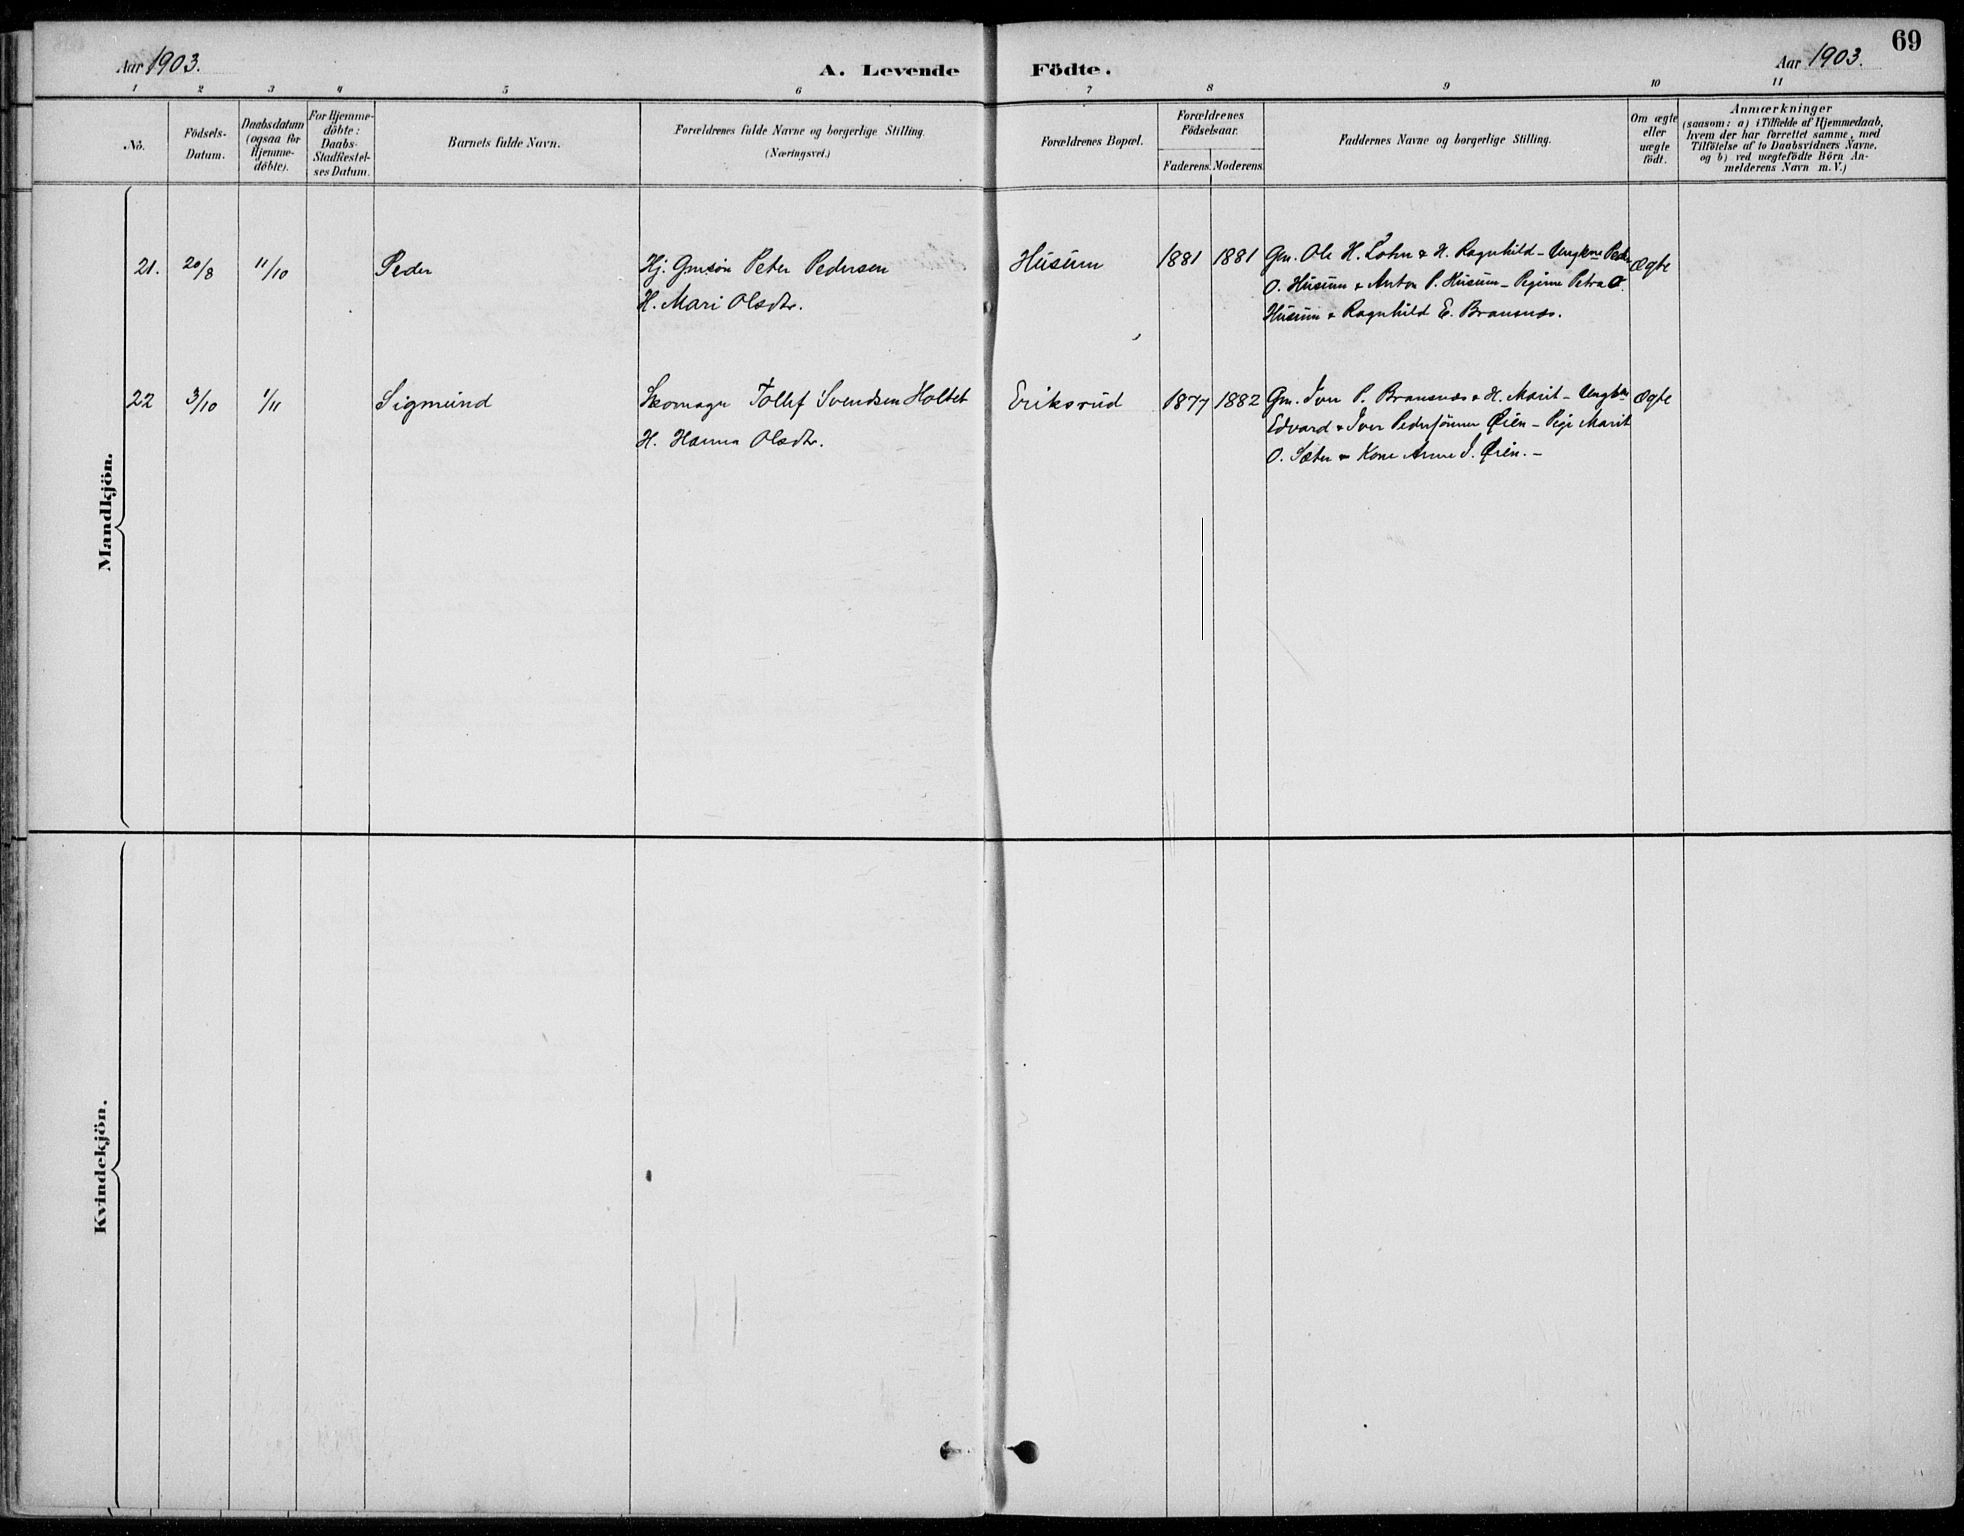 69
Aar 1903.
A. Levende Födte.
Aar 1903.
1 2 3 4 5 6 7 8 9 10 11
No.
Födsels-
Datum.
Daabsdatum
(ogsaa for
Hjemme-
döbte).
For Hjemme-
döbte:
Daabs-
Stadfæstel-
ses Datum.
Barnets fulde Navn.
Forældrenes fulde Navne og borgerlige Stilling.
(Næringsvei.)
Forældrenes Bopæl.
Forældrenes
Födselsaar.
Faderens. Moderens.
Faddernes Navne og borgerlige Stilling.
Om ægte
eller
uægte
födt.
Anmærkninger
(saasom: a) i Tilfælde af Hjemmedaab,
hvem der har forrettet samme, med
Tilföielse af to Daabsvidners Navne.
og b) ved uægtefödte Börn An-
melderens Navn m.V.)
Mandkjön.
21. 20/8 11/10 Peder
Hj. Gmsön Peter Pedersen
H. Mari Olsdtr.
Husum 1881 1881
Gm. Ole H. Lohn & H. Ragnhild - Ungkne Peder
O. Husum & Anton P. Husum - Pigerne Petra O.
Husum & Ragnhild E. Bransnæs.
Ægte
22 3/10 1/11 Sigmund
Skomager Tollef Svendsen Holtet
H. Hanna Olsdtr.
Eriksrud 1877 1882
Gm. Iver P. Bransnæs & H. Marit - Ungkne
Edvard & Iver Pedersönner Øien - Pige Marit
O. Sæter & Kone Anne I. Øien. -
Ægte
Kvindekjön.